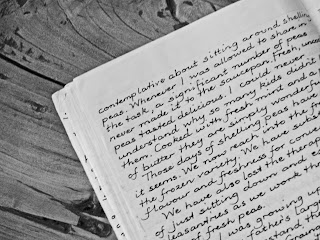 contemplative about sitting around shelling
peas. Whenever I was allowed to share in
the task, a significant number of peas
never made it to the saucepan. Fresh,
peas tasted delicious. I could never
understand why so many kids didn't
them. Cooked with fresh mint and a
of butter they are simply
Those days of shelling peas have
it seems. We now reach into the
the frozen variety. We have
flavour and freshness for
We have also lost the
of just sitting down and
pleasantries as we work
of fresh peas.
I was growing up
father's large